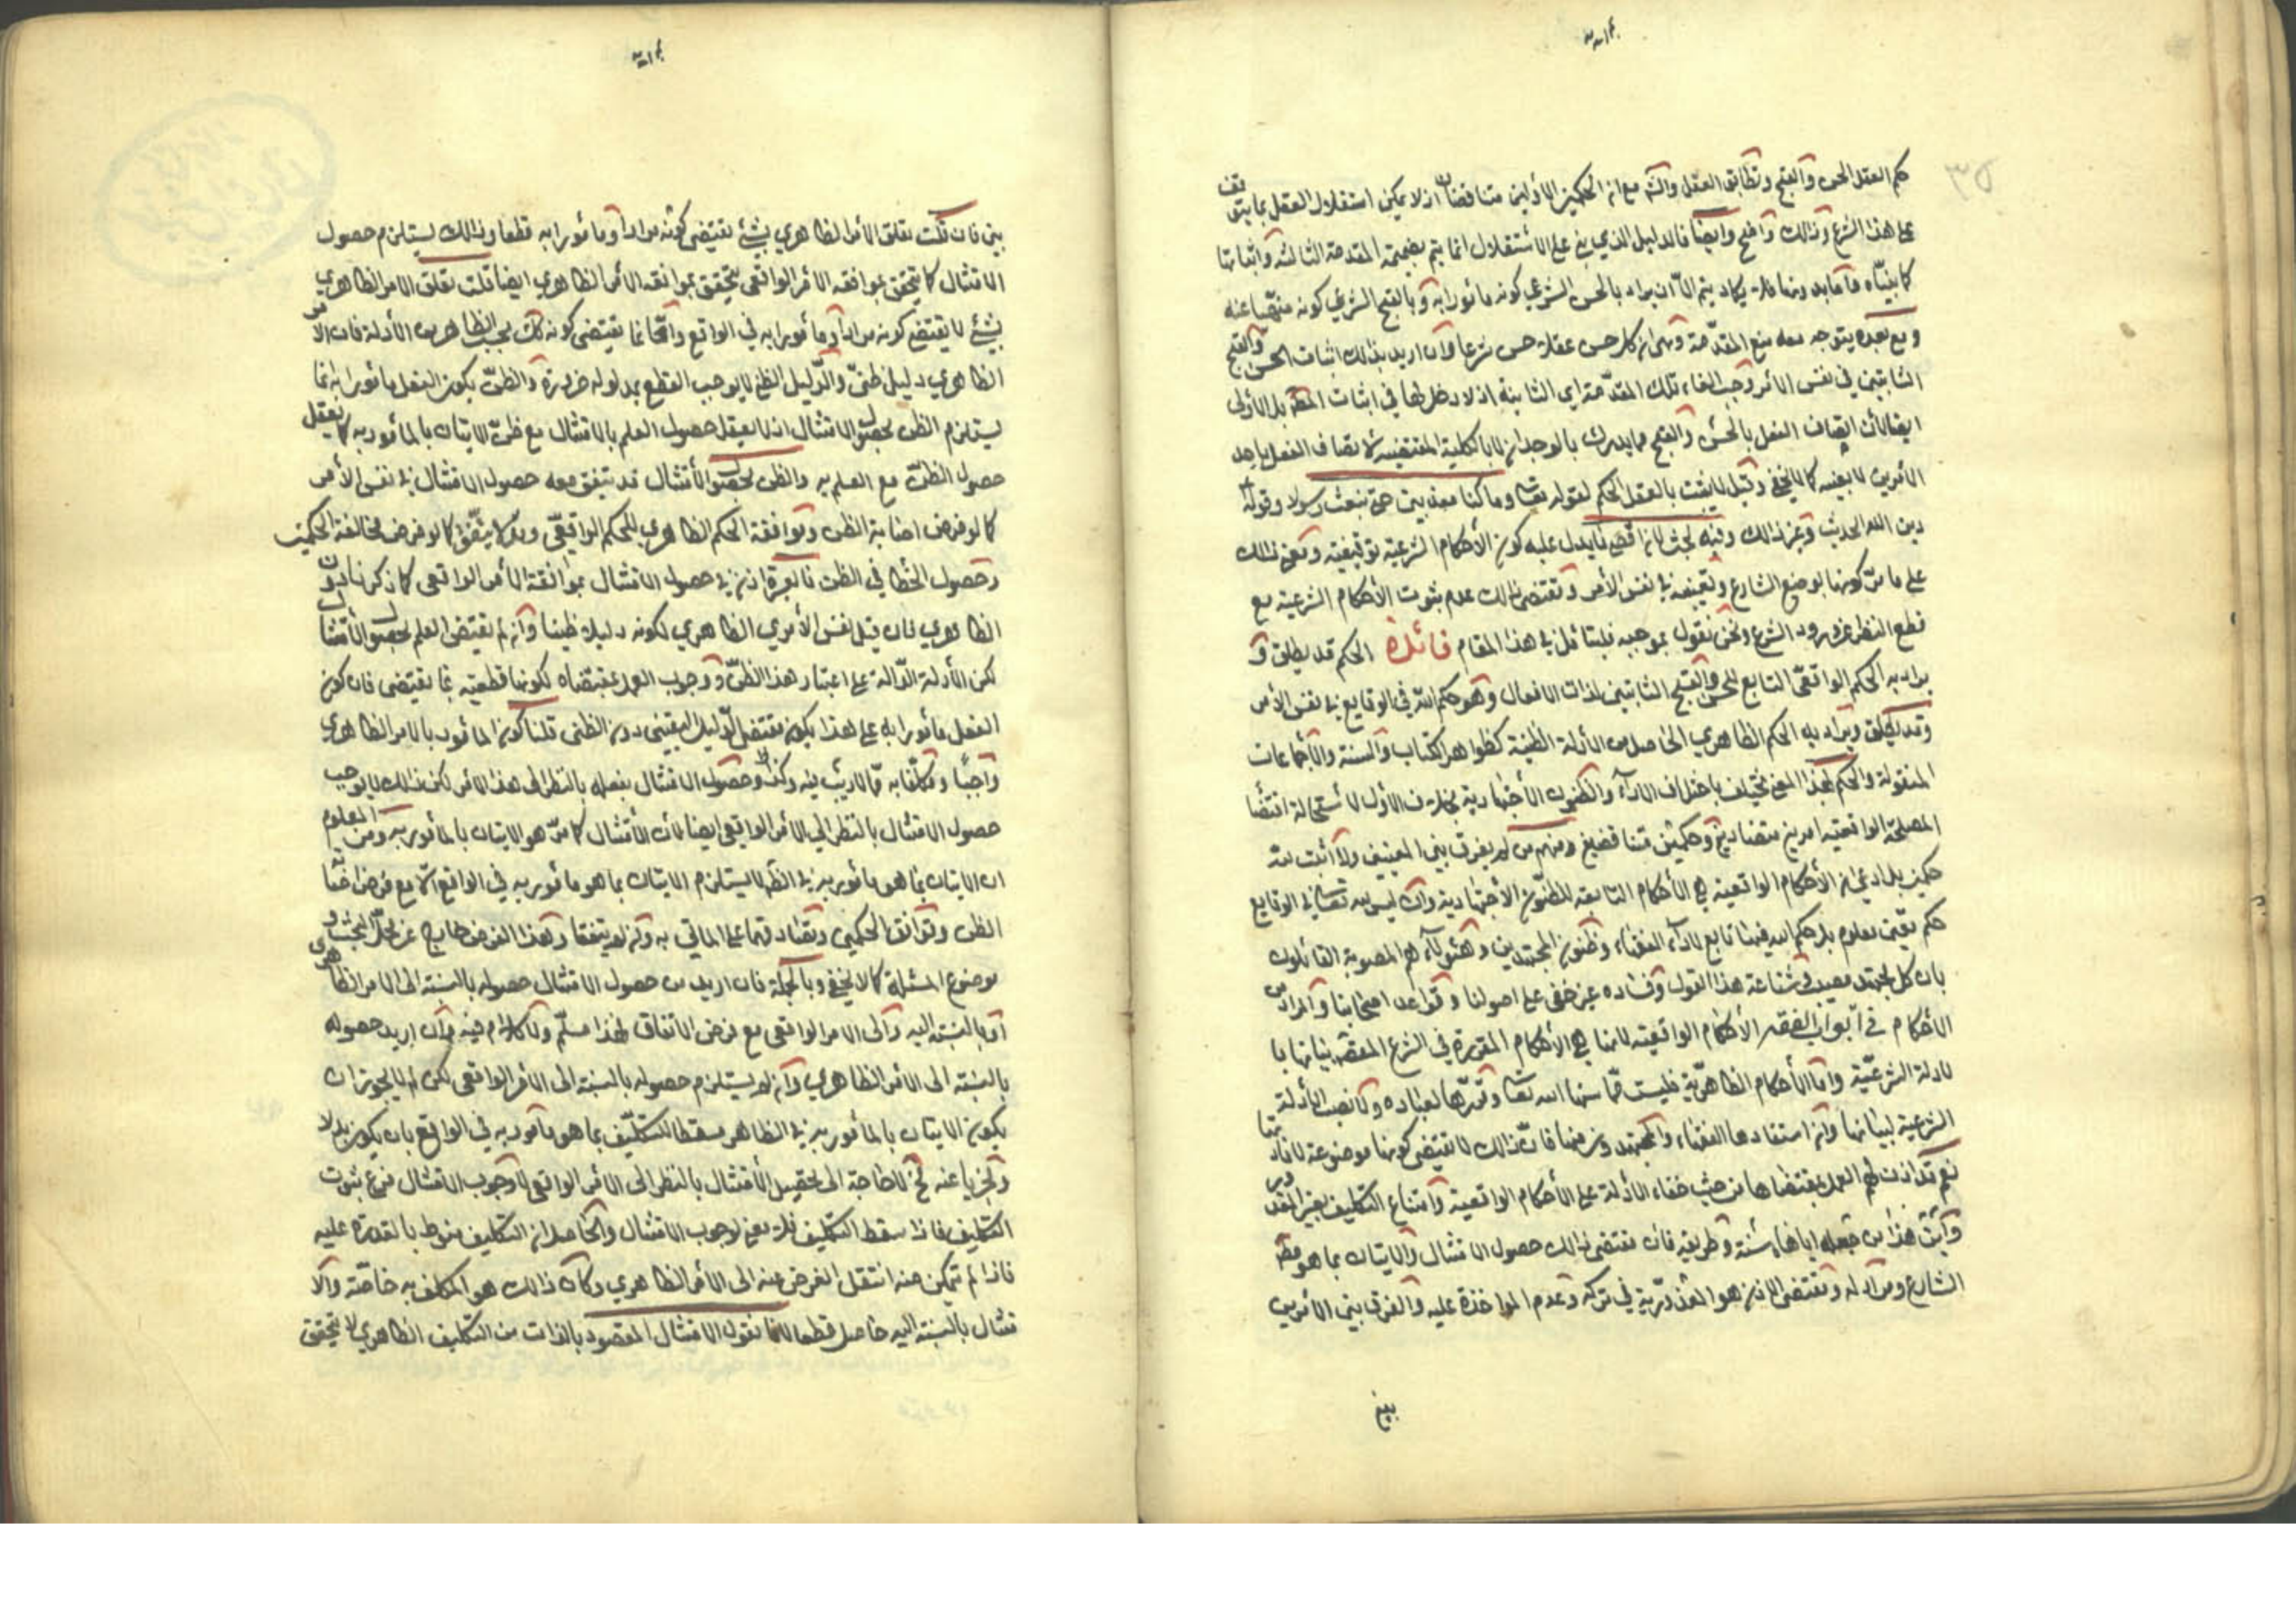 حكم العقل الحسن والقبح وتطابق العقل والشرع مع ان الحكمين الأولين متناقضان اذ لا يمكن استقلال العقل بما يتوقف
على هذا الشرع وذلك واضح وأيضا فالدليل الذي بني على الأستقلال انما يتم بضميمة المقدمة الثالثة واثباتها
كما بيناه وأما بدونها فلا يكاد يتم الا ان يراد بالحسن الشرعي كونه مأمورا به وبالقبح الشرعي كونه منهيا عنه
ومع بعده يتوجه معه منع المقدمة وهي ان كل حسن عقلا حسن شرعا وان اريد بذلك اثبات الحسن والقبح
الثابتين في نفس الأمر وجب الغاء تلك المقدمة اي الثانية اذ لا دخل لها في اثبات المط بل الأولى
ايضا لأن اتصاف الفعل بالحسن والقبح مما يدرك بالوجدان لا بالكلية المقتضية لاتصاف الفعل باحد
الأمرين لا بعينه كما لا يخفى وقيل لا يثبت بالعقل الحكم لقوله تعالى وما كنا معذبين حتى نبعث رسولا وقوله
دين الله الحديث وغير ذلك وفيه بحث لأن اقصى ما يدل عليه كون الأحكام الشرعية توقيفية ومعنى ذلك
على ما مر كونها بوضع الشارع وتعيينه في نفس الأمر ومقتضى ذلك عدم ثبوت الأحكام الشرعية مع
قطع النظر عن ورود الشرع ونحن نقول بموجبه فليتأمل في هذا المقام فائدة الحكم قد يطلق و
يراد به الحكم الواقعي التابع للحسن والقبح الثابتين لذات الافعال وهو حكم الله في الوقايع في نفس الأمر
وقد يطلق ويراد به الحكم الظاهري الحاصل من الأدلة الظنية كظواهر الكتاب والسنة والأجماعات
المنقولة والحكم بهذا المعنى يختلف باختلاف الآراء والظنون الأجتهادية بخلاف الأول لأستحالة اقتضاء
المصلحة الواقعية امرين متضادين وحكمين متناقضين ومنهم من لم يفرق بين المعنيين ولا أثبت لله
حكمين بل ادعى ان الأحكام الواقعية هي الأحكام التابعة للظنون الأجتهادية وان ليس لله تعالى في الوقايع
حكم معين معلوم بل حكم الله فيها تابع لآراء الفقهاء وظنون المجتهدين وهؤلاء هم المصوبة القائلون
بان كل مجتهد مصيب وشناعة هذا القول وفساده غير خفي على اصولنا وقواعد اصحابنا والمراد من
الأحكام في أبواب الفقه الأحكام الواقعية لانها هي الأحكام المقررة في الشرع المقصود بيانها با
لادلة الشرعية واما الأحكام الظاهرية فليست مما سنها الله تعالى وقررها لعباده ولا نصب الأدلة
الشرعية لبيانها وان استفادها الفقهاء والمجتهدون منها فان ذلك لا يقتضي كونها موضوعة لافادتها
نعم قد اذن لهم العمل بمقتضاها من حيث خفاء الأدلة على الأحكام الواقعية وامتناع التكليف بغير المقدور
وأين هذا من جعله اياها سنة وطريقة فان مقتضى ذلك حصول الامتثال والايتان بما هو مط
الشارع ومراد له ومقتضى الاذن هو المعذورية في تركه وعدم المؤاخذة عليه والفرق بين الأمرين
بين فان قلت تعلق الأمر الظاهري بشئ يقتضي كونه مرادا ومأمورا به قطعا وذلك يستلزم حصول
الامتثال كما يتحقق بموافقة الأمر الواقعي يتحقق بموافقة الأمر الظاهري ايضا قلت تعلق الامر الظاهري
بشئ لا يقتضي كونه مرادا ومأمورا به في الواقع وانما يقتضي كونه كك بحسب الظاهر من الأدلة فان الأمر
الظاهري دليل ظني والدليل الظني لا يوجب القطع بمدلوله ضرورة والظن بكون الفعل مأمورا به انما
يستلزم الظن بحصول الامتثال اذ لا يعقل حصول العلم بالامتثال مع ظن الايتان بالمأمور به كما يعقل
حصول الظن مع العلم به والظن بحصول الأمتثال قد يتفق معه حصول الامتثال في نفس الأمر
كما لو فرض اصابة الظن وموافقة الحكم الظاهري للحكم الواقعي وقد لا يتفق كما لو فرض مخالفة الحكمين
وحصول الخطا في الظن فالعبرة اذن في حصول الامتثال بموافقة الأمر الواقعي كما ذكرنا دون
الظاهري فان قيل نفس الأمر الظاهري لكونه دليلا ظنيا وان لم يقتض العلم بحصول الأمتثال
لكن الأدلة الدالة على اعتبار هذا الظن ووجوب العمل بمقتضاه لكونها قطعية مما يقتضي فان كون
الفعل مأمورا به على هذا يكون مقتضى الدليل اليقيني دون الظني قلنا كون المأمور بالامر الظاهري
واجبا ومكلفا به مما لا ريب فيه وكذا حصول الامتثال بفعله بالنظر الى هذا الامر لكن ذلك لا يوجب
حصول الامتثال بالنظر الى الأمر الواقعي ايضا لأن الأمتثال كما مر هو الايتان بالمأمور به ومن المعلوم
ان الايتان بما هو مأمور به في الظ لا يستلزم الايتان بما هو مأمور به في الواقع الا مع فرض اصابة
الظن وتوافق الحكمين وتصادقهما على المأتي به وان لم يتفقا وهذا الفرض خارج عن محل البحث و
موضوع المسئلة كما لا يخفى وبالجملة فان اريد من حصول الامتثال حصوله بالنسبة الى الامر الظاهري
أو بالنسبة اليه والى الامر الواقعي مع فرض الأتفاق فهذا مسلم ولا كلام فيه وان اريد حصوله
بالنسبة الى الامر الظاهري وان لم يستلزم حصوله بالنسبة الى الامر الواقعي لكن لم لا يجوز ان
يكون الايتان بالمأمور به في الظاهر مسقطا للتكليف بما هو مأمور به في الواقع بان يكون بدلا
ومجزيا عنه فح لا حاجة الى تحصيل الأمتثال بالنظر الى الأمر الواقعي لأن وجوب الامتثال فرع ثبوت
التكليف فاذا سقط التكليف فلا معنى لوجوب الامتثال والحاصل ان التكليف منوط بالقدرة عليه
فاذا لم يتمكن منه انتقل الفرض عنه الى الأمر الظاهري وكان ذلك هو المكلف به خاصة والا
متثال بالنسبة اليه حاصل قطعا لانا نقول الامتثال المقصود بالذات من التكليف الظاهري لا يتحقق